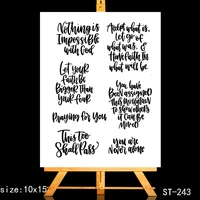 Nothing is
Impossible
with God
Let your
faith be
Bigger than
your fear
Praying for You
This too
Shall Pass
Accept what is,
Let go of
what was, &
Have faith in
what will be.
You have
Been assigned
this mountain
to show others
it can be
Moved
You are
Never alone
size:10x15
ST-243